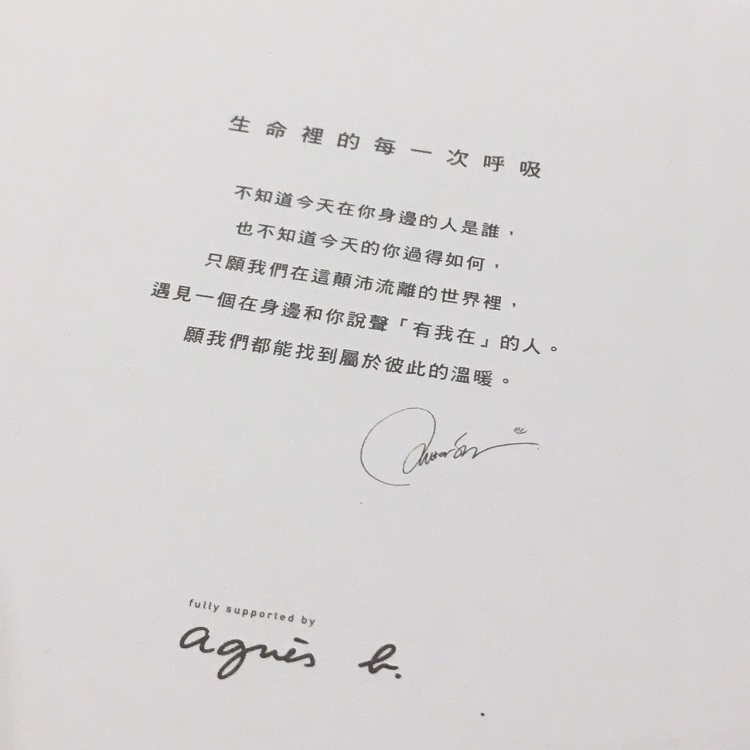 生命裡的每一次呼吸
不知道今天在你身邊的人是誰，
也不知道今天的你過得如何，
只願我們在這顛沛流離的世界裡，
遇見一個在身邊和你說聲「有我在」的人。
願我們都能找到屬於彼此的溫暖。
fully supported by
agnès b.